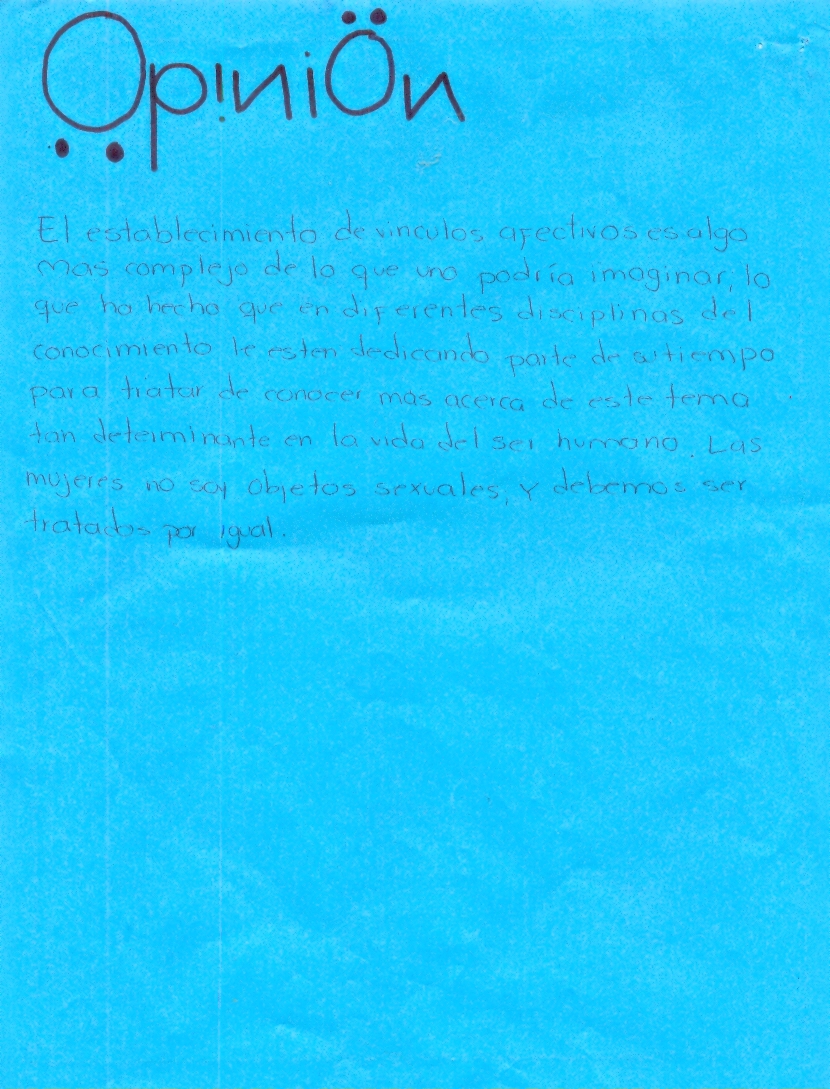 OpiniÖn
El establecimiento de vinculos afectivos es algo
mas complejo de lo que uno podría imaginar, lo
que ha hecho que en diferentes disciplinas del
conocimiento le esten dedicando parte de su tiempo
para tratar de conocer más acerca de este tema
tan determinante en la vida del ser humano. Las
mujeres no soy objetos sexuales, y debemos ser
tratados por igual.